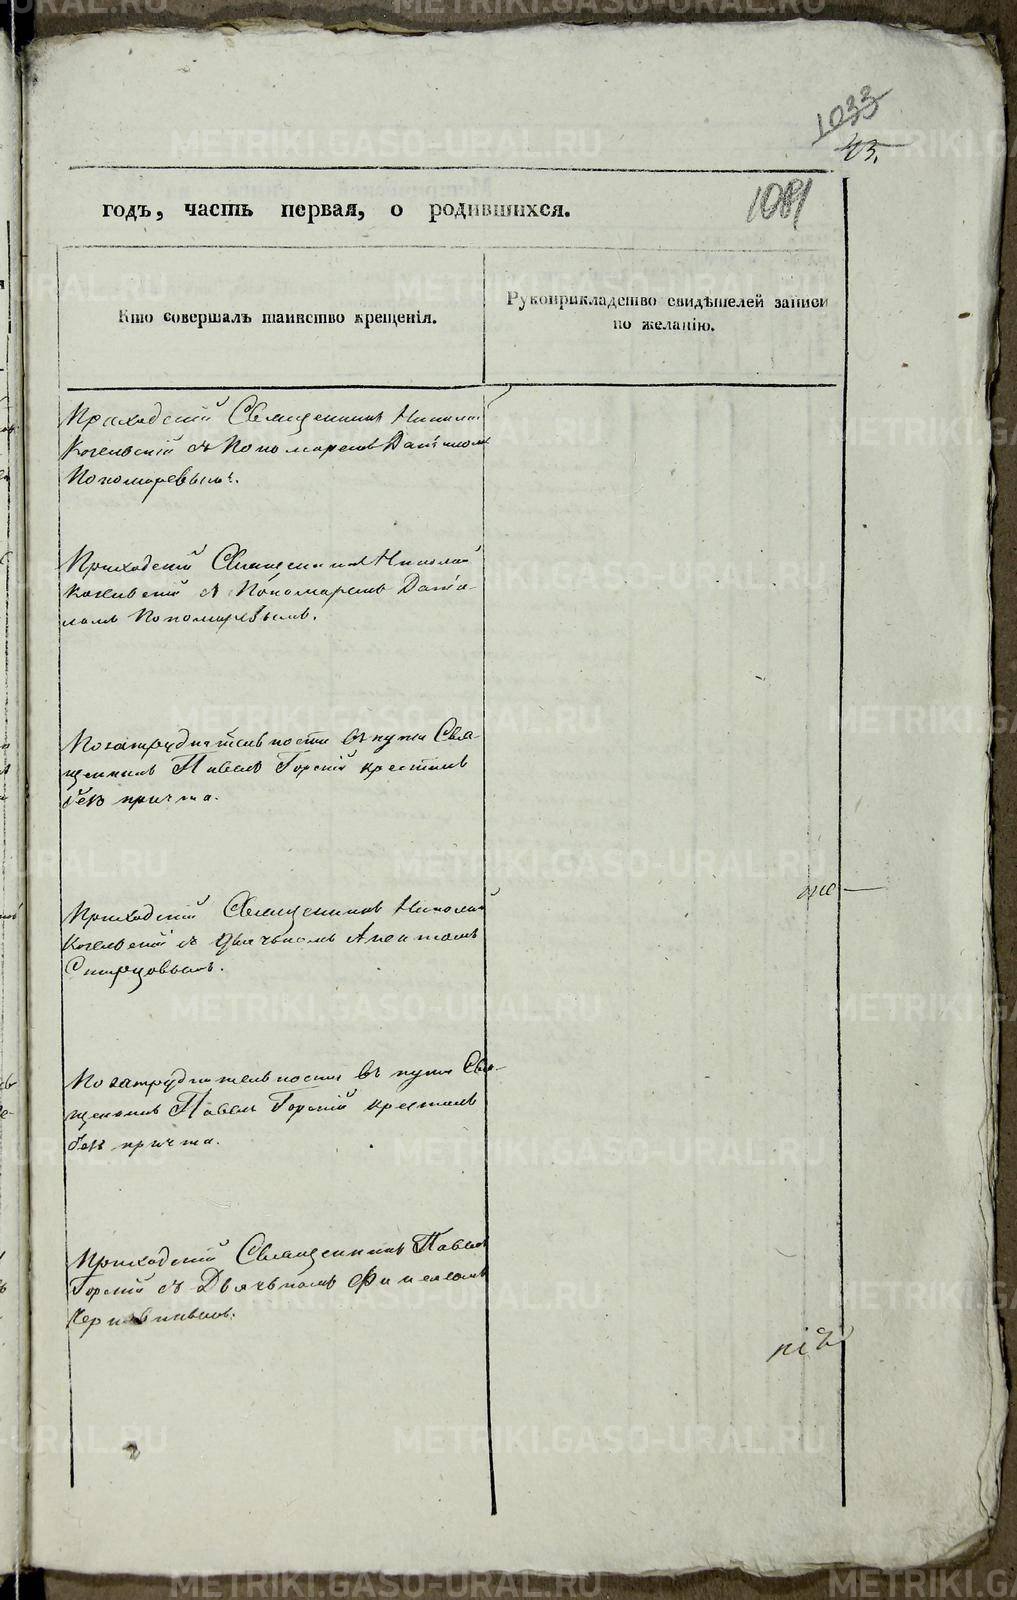 1033
43.
1081
годъ, часть первая, о родившихся.
Кто совершалъ таинство крещенія.
Рукоприкладство свидѣтелей записи
по желанію.
Приходскій Священникъ Николай
съ Пономаремъ Даніиломъ
Пономаревымъ.
Приходскій Священникъ Николай
съ Пономаремъ Даніи-
ломъ Пономаревымъ.
По затруднительности въ пути Свя-
щенникъ Павелъ Горскій крестилъ
безъ причта.
Приходскій Священникъ Николай
съ Дьячкомъ
Старцовымъ.
По затруднительности въ пути Свя-
щенникъ Павелъ Горскій крестилъ
безъ причта.
Приходскій Священникъ Павелъ
Горскій съ Дьячкомъ
METRIKI.GASO-URAL.RU